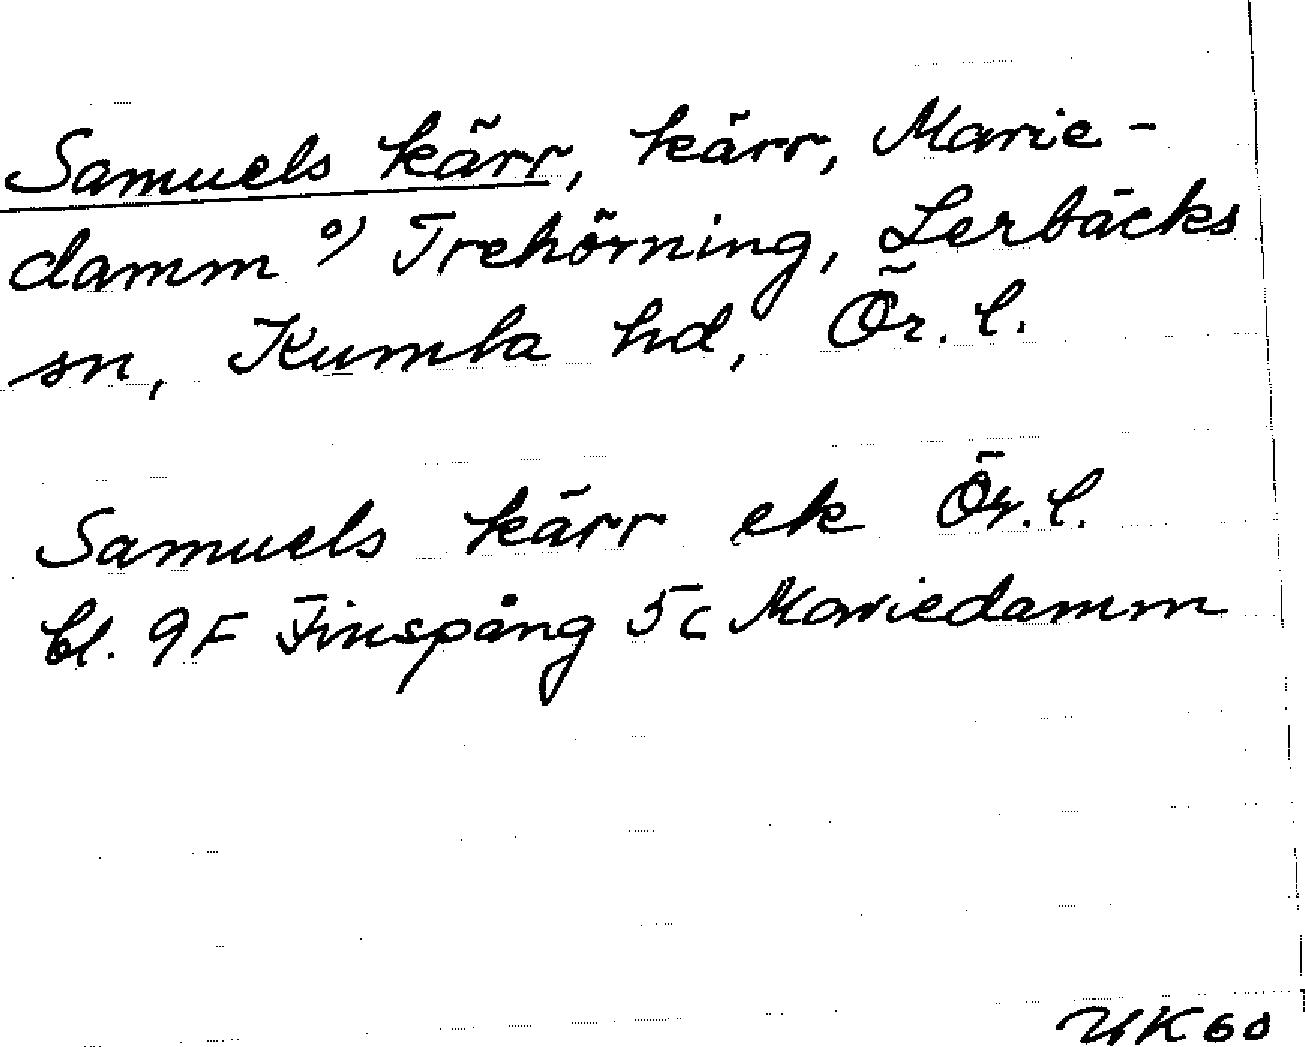 Samuels kärr, kärr, Marie-
damm o/ Trehörning, Lerbäcks
sn, Kumla hd, Ör. l.
Samuels kärr ek Ör. l.
bl. 9F Finspång 5c Mariedamm
UK60